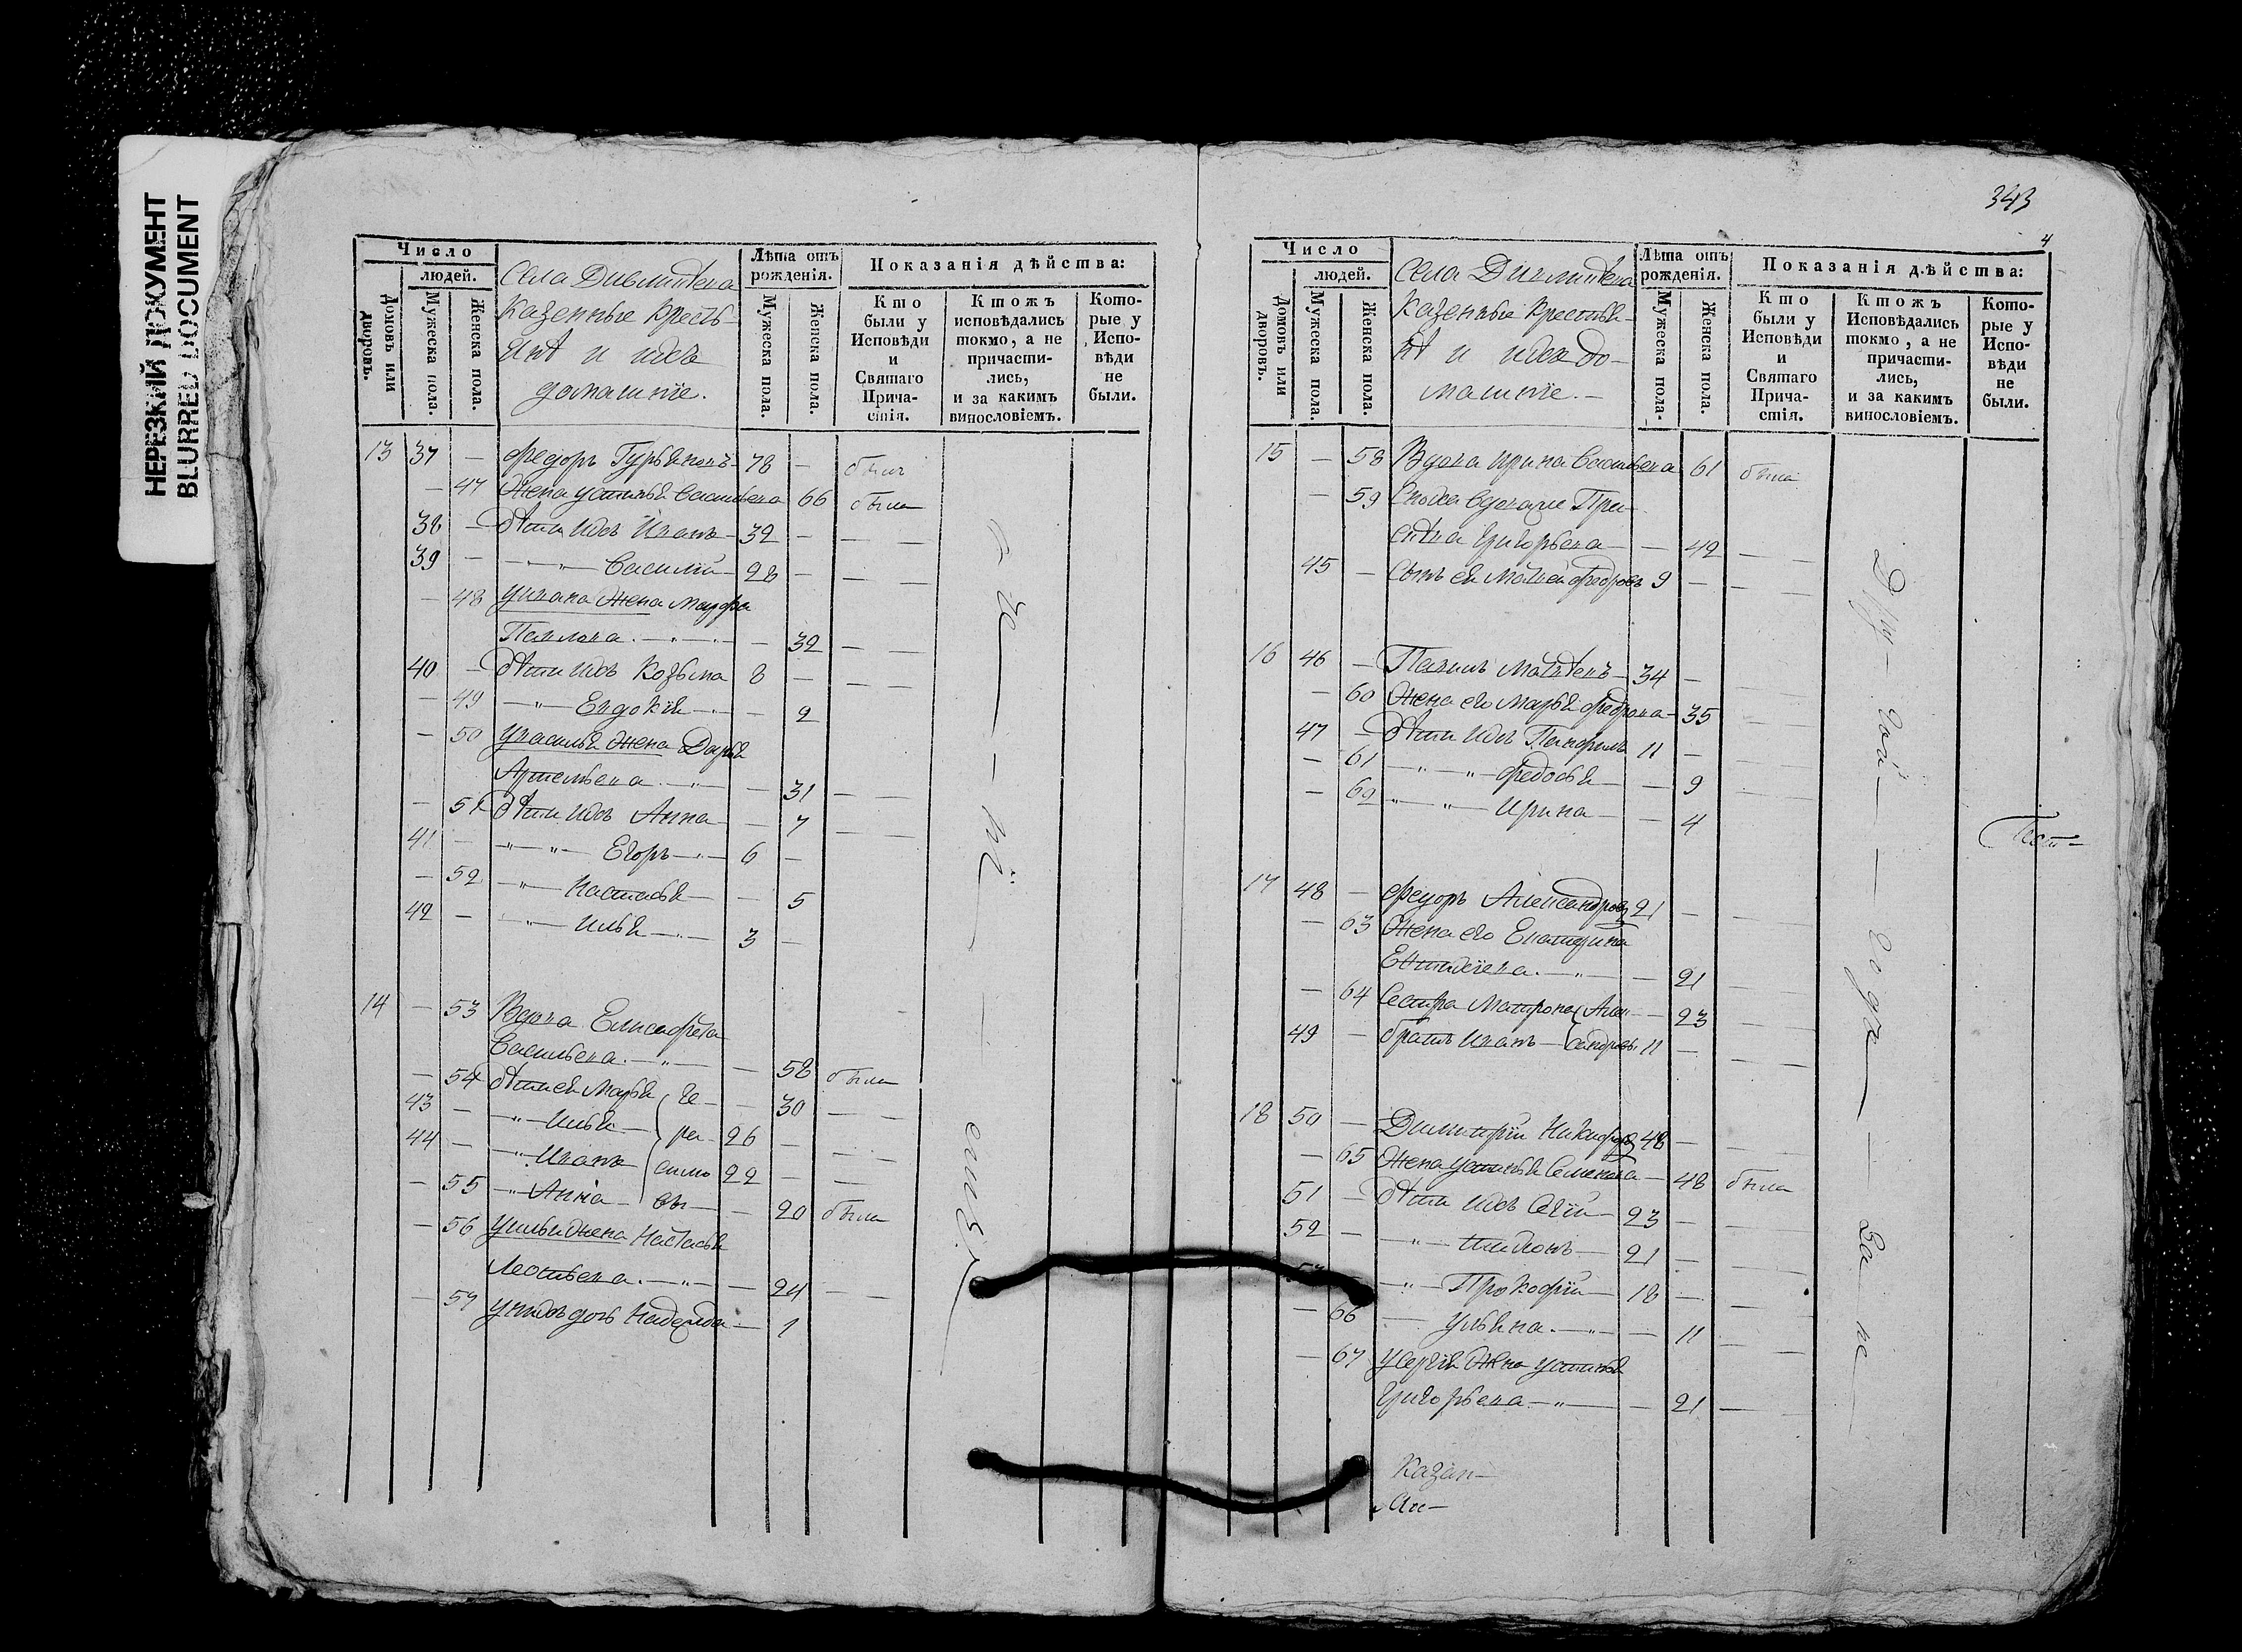 НЕРЕЗКИЙ ДОКУМЕНТ
BLURRED DOCUMENT
Число
людей.
Домовъ или дворовъ.
Мужеска пола.
Женска пола.
Села
Казенные Кресть-
яне и ихъ
домашніе.
Лѣта отъ рожденія.
Мужеска пола.
Женска пола.
Показанія дѣйства:
Кто были у Исповѣди и Святаго Прича-стія.
Ктожъ исповѣдались токмо, а не причасти-лись, и за какимъ винословіемъ.
Кото-рые у Испо-вѣди не были.
13 37 — Федоръ Гурьяновъ 78 — былъ
— 47 Жена Устинья Васильева 66 была
38 — дѣти ихъ Иванъ 32 —
39 — Василій 28 —
— 48 У Ивана жена Мавра
Павлова — 32
40 — дѣти ихъ Козьма 8 —
— 49 Евдокія — 9
— 50 У Василья жена Дарья
Артемьева — 31
— 51 дѣти ихъ Анна — 7
41 — Егоръ 6 —
— 52 Настасья — 5
42 — Илья 3 —
14 — 53 Вдова Елисафета
Васильева — 58 была
— 54 дѣти ея Марья Ге- — 30
43 — Илья ра- 26 —
44 — Иванъ симо 22 —
— 55 Анна вы — 20 была
— 56 У Ильи жена Настасья
Леонтьева — 24
— 59 У нихъ дочь Надежда — 1
343
4
Число
людей.
Домовъ или дворовъ.
Мужеска пола.
Женска пола.
Села
Казенные Крестья-
не и ихъ до-
машніе.
Лѣта отъ рожденія.
Мужеска пола.
Женска пола.
Показанія дѣйства:
Кто были у Исповѣди и Святаго Прича-стія.
Ктожъ Исповѣдались токмо, а не причасти-лись, и за какимъ винословіемъ.
Кото-рые у Испо-вѣди не были.
15 — 58 Вдова Ирина Васильева 61 была
— 59 Сноха вдовая
Григорьева — 42
45 — Сынъ ея Матвей Федоровъ 9 —
16 46 — Павелъ Матвѣевъ 34 —
— 60 Жена его Марья Федорова 35
47 — дѣти ихъ Панфилъ 11 —
— 61 Федосья — 9
— 62 Ирина — 4
17 48 — Федоръ Александровъ 21 —
— 63 Жена его Екатерина
— 21
— 64 Сестра Матрона Алек- — 23
49 — братъ Иванъ сандровы 11 —
18 50 — Димитрій Никифоровъ 48 —
— 65 Жена Устинья Семенова — 48 была
51 — дѣти ихъ 23 —
52 — 21 —
53 — Прокофій 18 —
— 66 Ульяна — 11
— 67 У Сергія жена Устинья
Григорьева — 21
Казен-